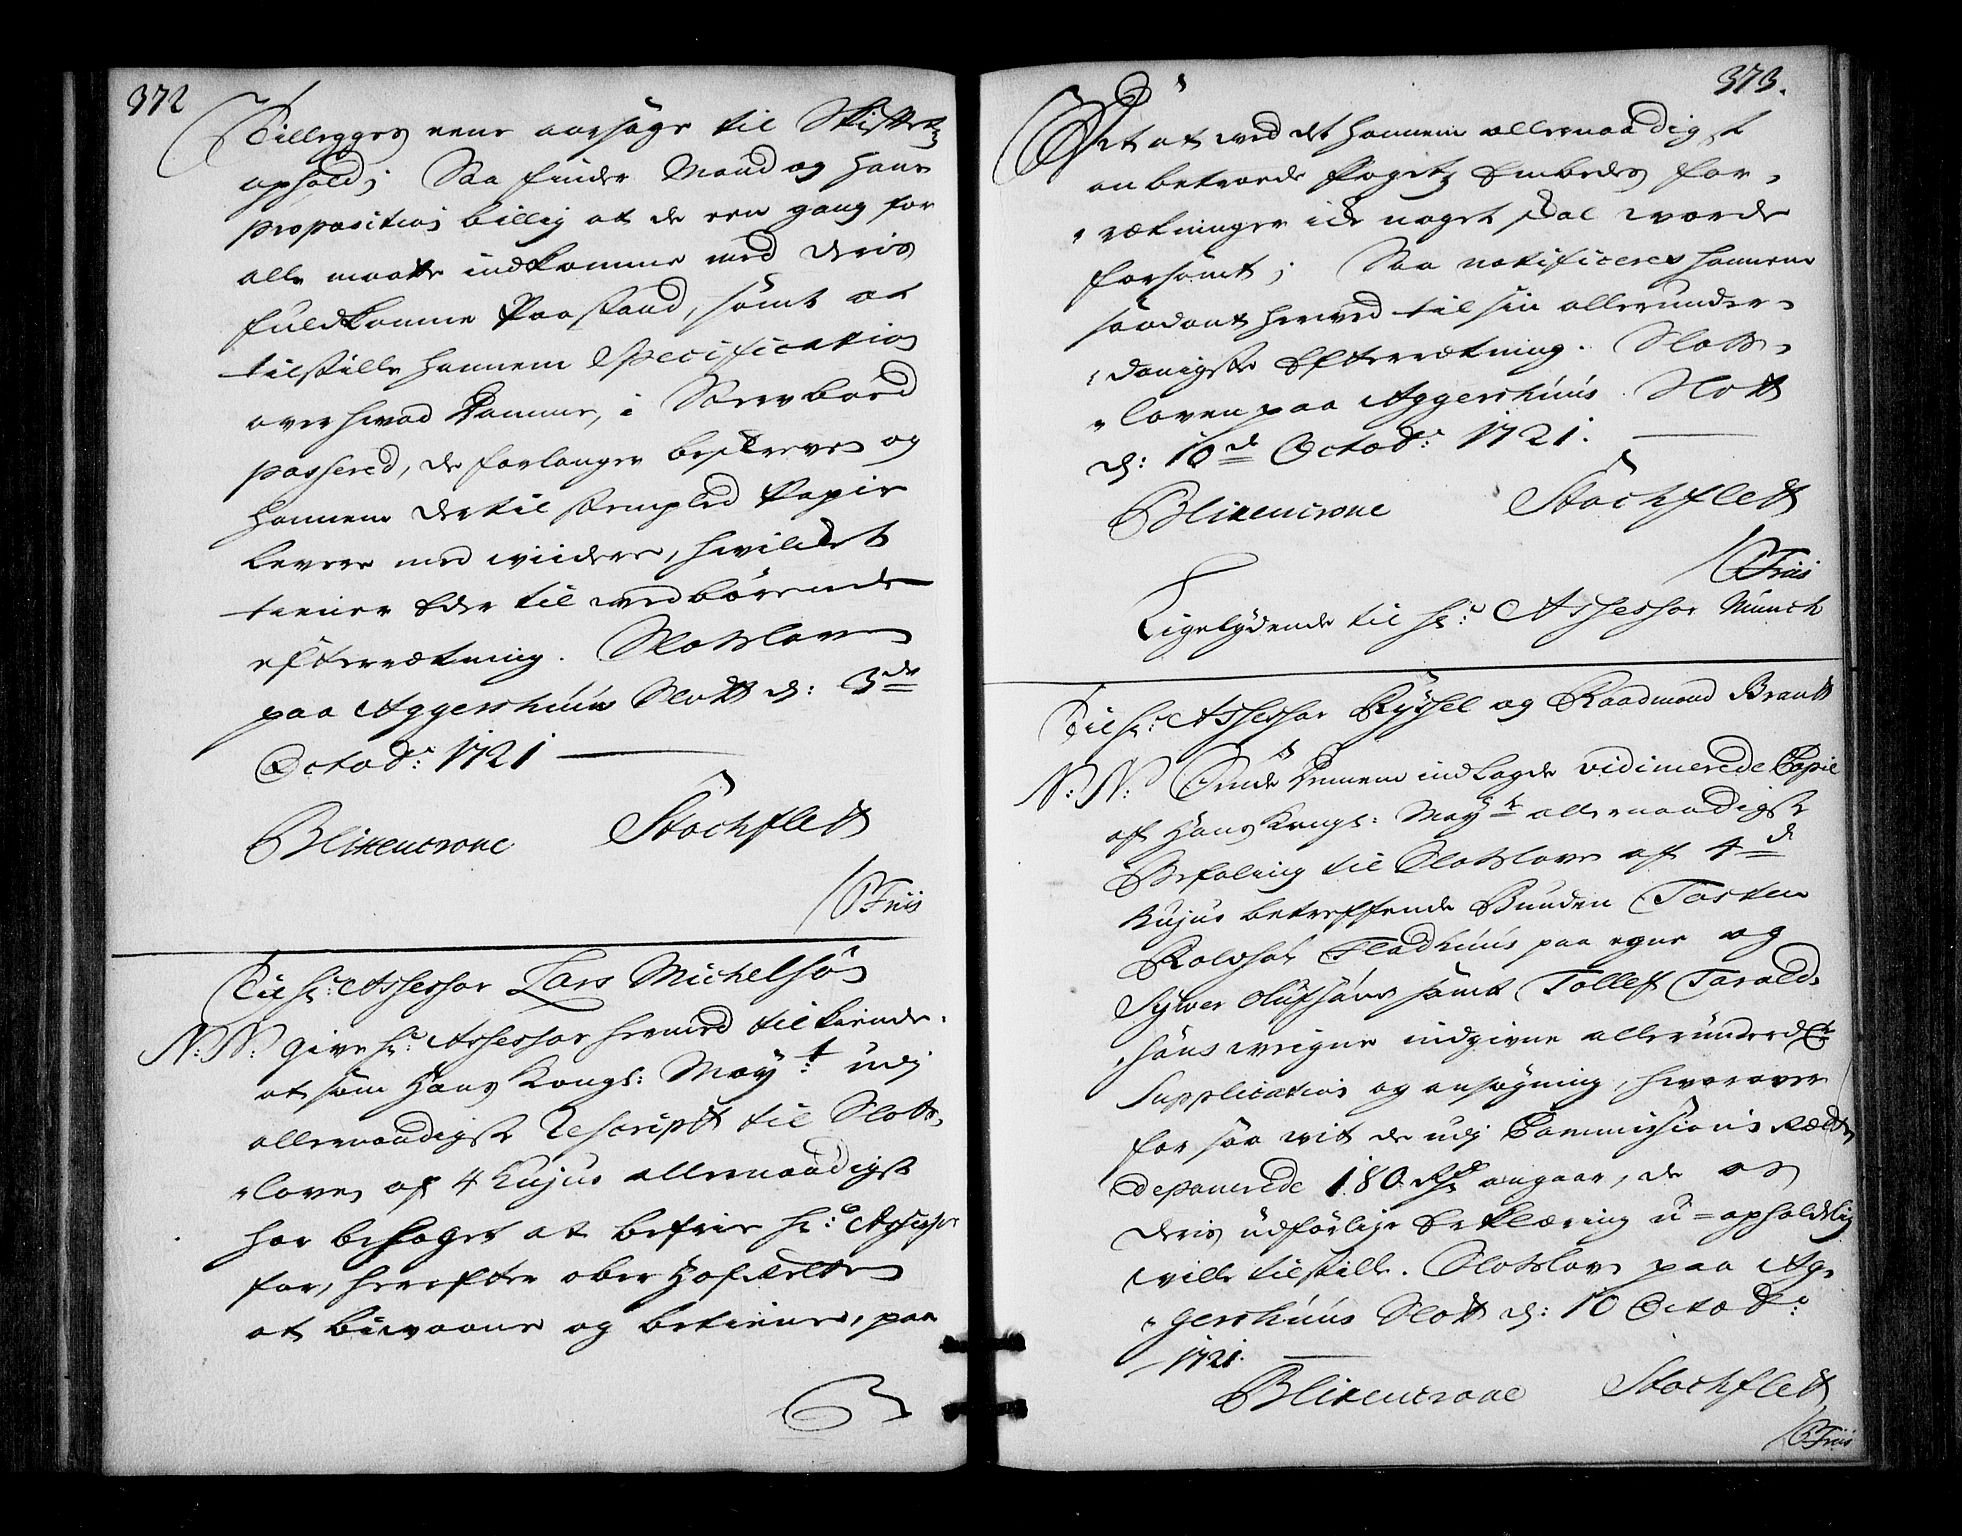 372
Tillegges eene aarsage til Skiftetz
ophold; Saa finder Mand og hans
proposition billig at de een gang for
alle maatte indkomme med deris
fuldkomne Paastand, samt at
tilstille hannem Specification
over hvad Domme, i Sterboed
passered, de forlanger beskrevne og
hannem dertil stemplet Papir
levere med viidere, hvilket
tiener Eder til vedbørende
efterretning. Slotsloven
paa Aggershuus Slott d: 3de
Octobr: 1721
Blixencrone Stochflett
/P Friis
Til Hr: Assessor Lars Michelsøn
N: N: give Hr: Assessor hermed tilkiende,
at som Hans Kongl: Mayt: udj
allernaadigste Rescript til Slotts
loven af 4 hujus allernaadigst
har behaget at befrie Hr: Assessor
for, herefter ober Hof Retten
at bievaane og betiene, paa
373.
Det at ved det hannem allernaadigst
anbetroede Fogetz Embedes for-
retninger icke noget skal vorde
forsømt; Saa notificeres hannem
saadant herved til sin allerunder-
danigste Efterretning. Slotts-
loven paa Aggershuus Slott
d: 10de Octobr: 1721.
Blixencrone Stochflett
/P Friis
Ligelydende til Hr: Assessor Munch
Til Hr: Assessor Ryssel og Raadmand Brandt
N: N: Ønske dennem indlagde vidimerede Copie
aff Hans Kongl: Mayts allernaadigste
Befaling til Slotsloven af 4de
hujus betreffende Bunden Torsten
Rolvsøn Fladhuus paa egne og
Sylver Olufsøns samt Tollef Tarald-
søns veigne indgivne allerunderdte
Supplication og ansøgning, hvorover
for saa vit de udj Commissions Retten
deponerede 180 Rdr angaar, de os
deris udførlige Erklæring u-opholdelig
ville tilstille. Slotsloven paa Ag-
gershuus Slott d: 10 Octobr:
1721.
Blixencrone Stochflett
/P Friis